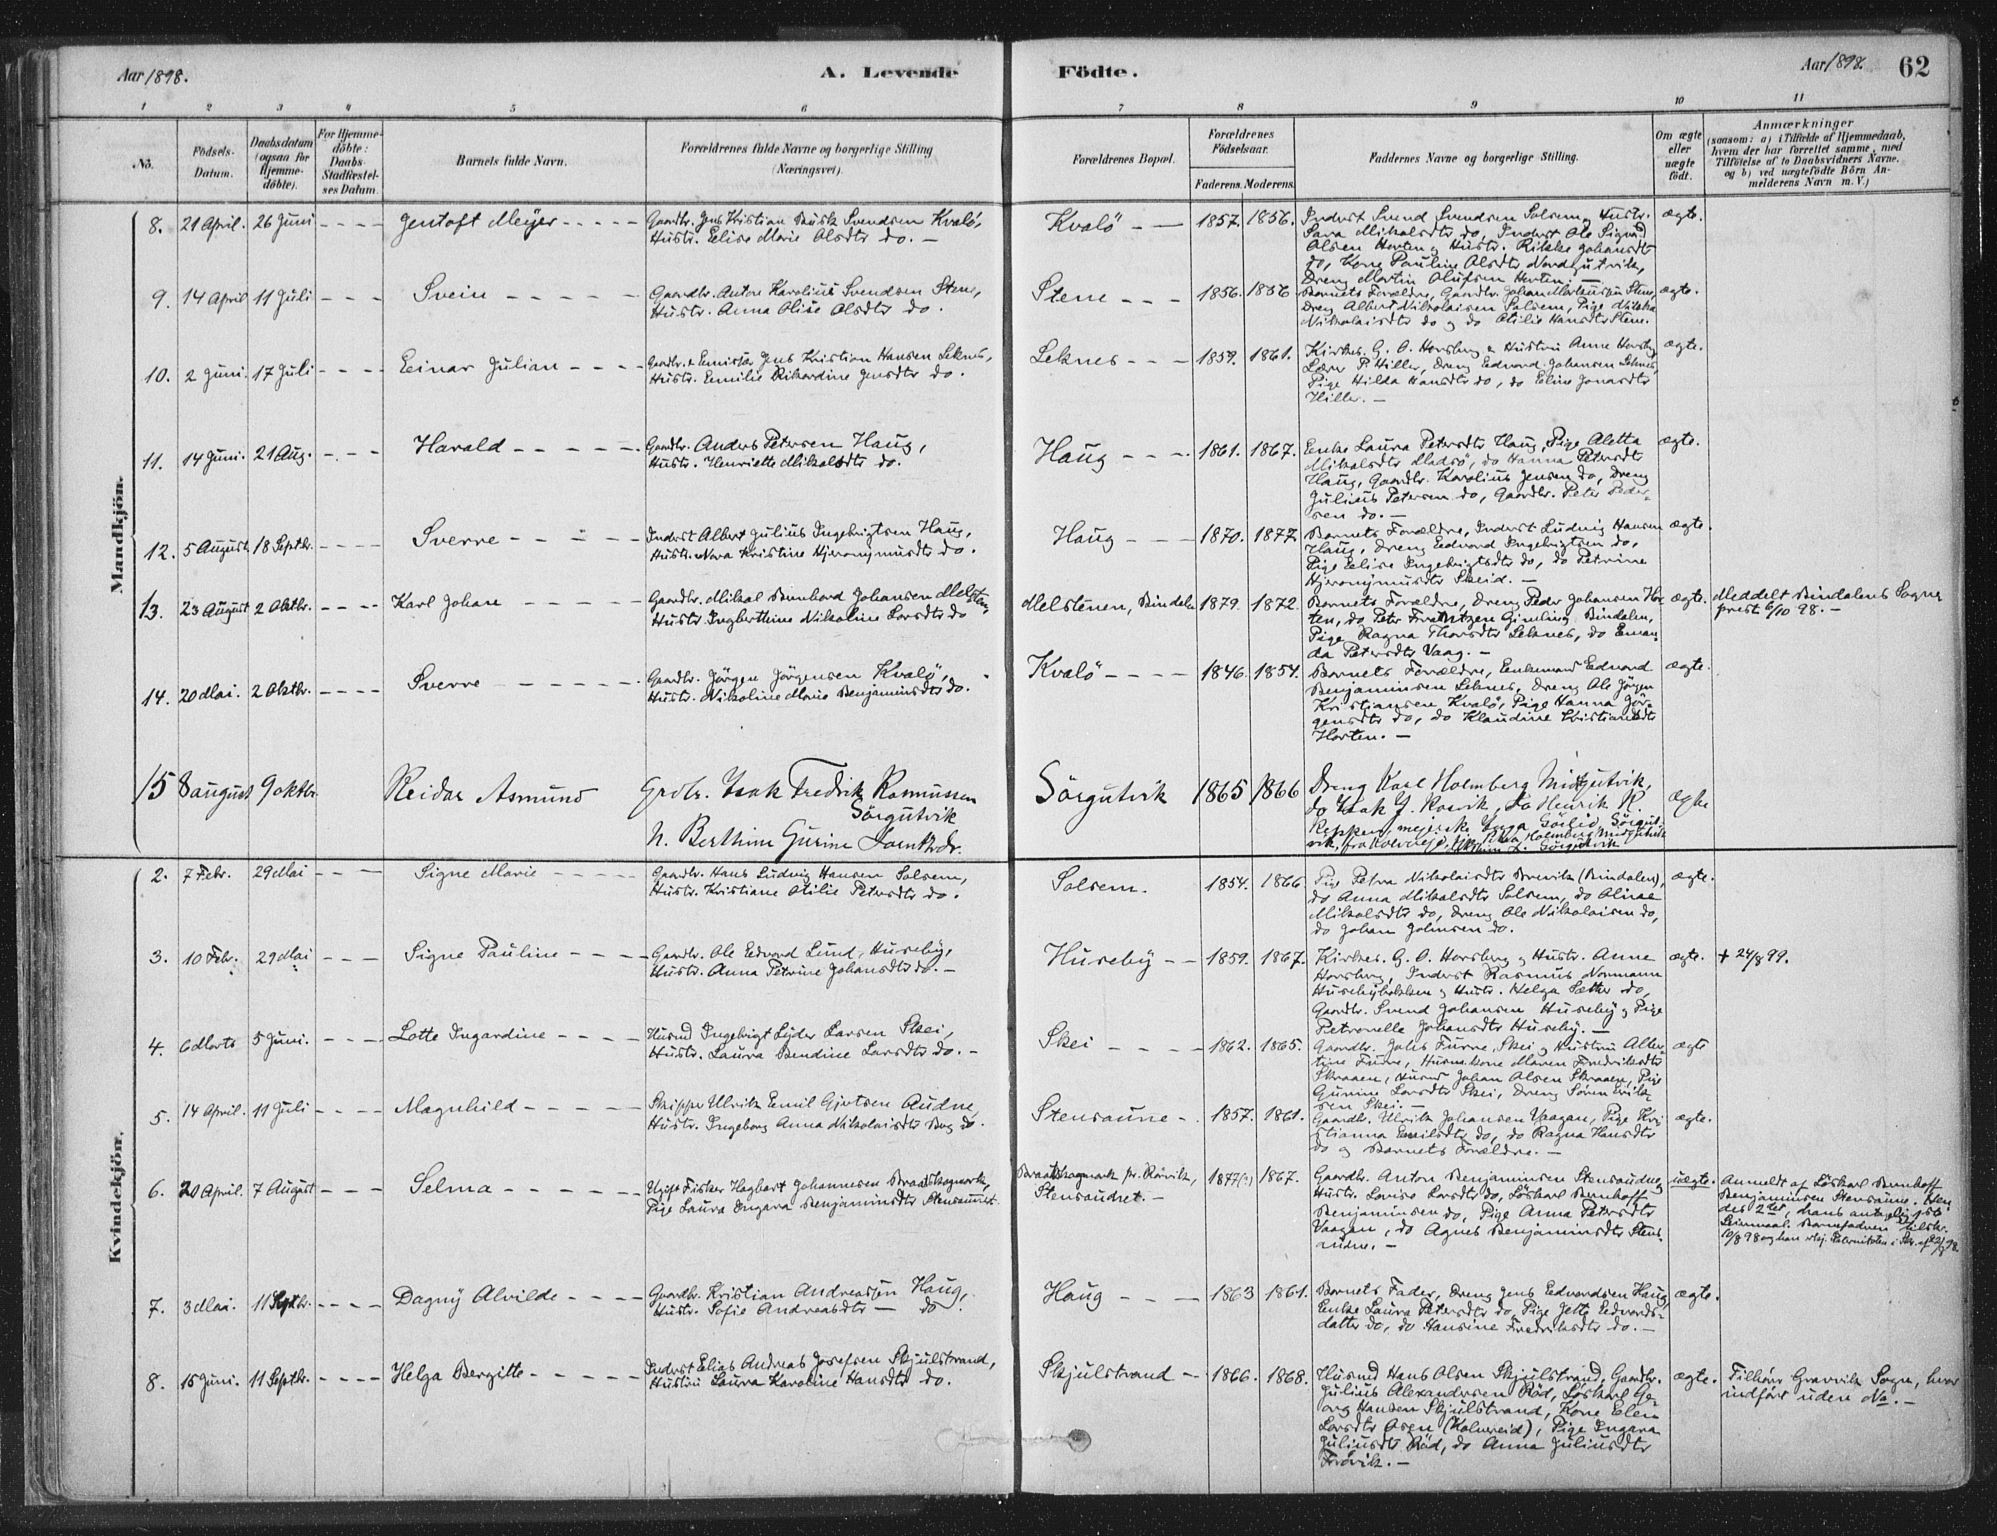 Aar 1898.
A. Levende
Födte.
Aar 1898.
62
1 2 3 4 5 6 7 8 9 10 11
No.
Födsels-
Datum.
Daabsdatum
(ogsaa for
Hjemme-
döbte).
For Hjemme-
döbte:
Daabs-
Stadfæstel-
ses Datum.
Barnets fulde Navn.
Forældrenes fulde Navne og borgerlige Stilling
(Næringsvei).
Forældrenes Bopæl.
Forældrenes
Födselsaar.
Faderens. Moderens.
Faddernes Navne og borgerlige Stilling.
Om ægte
eller
uægte
födt.
Anmærkninger
(saasom: a) i Tilfælde af Hjemmedaab,
hvem der har forrettet samme, med
Tilföielse af to Daabsvidners Navne,
og b) ved uægtefödte Börn An-
melderens Navn m. V.)
Mandkjön.
8. 21 April. 26 Juni - - - - Gentoft Meyer - - - -
Gaardbr. Jens Kristian Busk Svendsen Kvalö,
Hustr. Elise Marie Olsdtr do. -
Kvalö - - 1857. 1856.
Inderst Svend Svendsen Solsem og Hustr.
Sara Mikalsdtr do, Inderst Ole Sigvard
Olsen Horten og Hustr. Rikke Johansdtr
do, Kone Pauline Olsdtr Nordgutvik,
Dreng Martin Olufsen Horten. -
ægte.
9. 14 April 11 Juli - - - Svein - - - - -
Gaardbr. Anton Karolius Svendsen Stene,
Hustr. Anna Olise Olsdtr do.
Stene - - - 1856. 1856
Barnets Forældre, Gaardbr. Johan Mortensen Stene,
Dreng Albert Nikolaisen Solsem, Pige Nikka
Nikolaisdtr do og do Otilie Hansdtr Stene.
ægte.
10. 2 Juni. 17 Juli - - - - Einar Julian - - - -
Gaardbr. & Emissær Jens Kristian Hansen Leknes,
Hustr. Emilie Rikardine Jensdtr do.
Leknes - - - 1859. 1861.
Kirkes. G. O. Horsberg & Hustru Anne Horsberg
Lærer P. Hiller, Dreng Edvard Johansen Leknes,
Pige Hilda Hansdtr do, do Eline Jonasdtr
Hiller. -
ægte.
11. 14 Juni. 21 Aug. - - - - Harald - - - - -
Gaardbr. Anders Petersen Haug,
Hustr. Henriette Mikalsdtr do.
Haug - - - 1861. 1867.
Enke Laura Petersdtr Haug, Pige Aletta
Mikalsdtr Madsö, do Hanna Petersdt
Haug, Gaardbr. Karolius Jensen do, Dreng
Julius Petersen do, Gaardbr. Peter Peder-
sen do. -
ægte.
12. 5 August 18 Septbr. - - - - Sverre - - - -
Inderst Albert Julius Ingebrigtsen Haug,
Hustr. Nora Kristine Hjeronymusdtr do.
Haug - - - 1870. 1877.
Barnets Forældre, Inderst Ludvig Hansen
Haug, Dreng Edvard Ingebrigtsen do,
Pige Elise Ingebrigtsdtr do, do Petrine
Hjeronymusdtr Skeid. -
ægte.
13. 23 August 2 Oktbr. - - - - Karl Johan - - - - -
Gaardbr. Mikal Bernhard Johansen Melsten,
Hustr. Ingbertine Nikoline Larsdtr do
Melstenen, Bindalen 1879. 1872.
Barnets Forældre, Dreng Peder Johansen Hor-
ten, do Peter Frantzen Gimling Bindalen,
Pige Ragna Thorsdtr Leknes, do Eman-
da Petersdtr Vaag. -
ægte.
Meddelt Bindalens Sogne
prest 6/10 98. -
14. 20 Mai. 2 Oktbr. - - - - Sverre - - - - - -
Gaardbr. Jörgen Jörgensen Kvalö,
Hustr. Nikoline Marie Benjaminsdtr do.
Kvalö - - - - 1846. 1854.
Barnets Forældre, Enkemand Edvard
Benjaminsen Leknes, Dreng Ole Jörgen
Kristiansen Kvalö, Pige Hanna Jör-
gensdtr do, do Klaudine Kristiansdtr
Horten. -
ægte.
15 8 august 9 oktbr. Reidar Asmund
Grdbr. Isak Fredrik Rasmussen
Sörgutvik
h. Berthine Gurine Isaksdr.
Sörgutvik 1865 1866
Dreng Karl Holmberg Midtgutvik,
do Isak J. Rosvik, do Henrik R.
Sörgut-
Ægte
Kvindekjön.
2. 7 Febr. 29 Mai - - - Signe Marie - - - -
Gaardbr. Hans Ludvig Hansen Solsem,
Hustr. Kristiane Otilie Petersdtr do.
Solsem. 1854. 1866
Pige Petra Nikolaisdtr Brevik (Bindalen),
do Anna Mikalsdtr Solsem, do Olinae
Mikalsdtr do, Dreng Ole Nikolaisen do,
do Johan Johnsen do.
ægte.
3. 10 Febr. 29 Mai - - - Signe Pauline - - -
Gaardbr. Ole Edvard Lund, Huseby,
Hustr. Anna Petrine Johansdtr do. -
Huseby - - 1859. 1867.
Kirkes. G. O. Horsberg og Hustr. Anne
Horsberg, Inderst Rasmus Normann
Husebybakken og Hustr. Helga Sætter do,
Gaardbr. Svend Johansen Huseby og Pige
Petronelle Johansdtr Huseby. -
ægte.
+ 24/8 99.
4. 6 Marts 5 Juni. - - - - Lotte Ingardine - - - -
Husmd Ingebrigt Lyder Larsen Skei,
Hustr. Laura Bendine Larsdtr do. -
Skei - - - - 1862. 1865.
Gaardbr. Johs Furre, Skei og Hustru Alber-
tine Furre, Husm.kone Maren Fredriksdtr
Skraaen, Husmd Johan Olsen Skraaen, Pige
Gunine Larsdtr Skei, Dreng Sören Erik-
sen Skei. -
ægte
5. 14 April. 11 Juli - - - - Magnhild - - - - -
Skipper Ulrik Emil Gjertsen Audne,
Hustr. Ingeborg Anna Nikolaisdtr Bug do.
Stensaune - . 1857. 1861.
Gaardbr. Ulrik Johansen Vaagan, Pige Kri-
stianna Emilsdtr do, do Ragna Hansdtr
do og Barnets Forældre. -
ægte.
6. 20 April. 7 August - - - Selma - - - - - -
Ugift Fisker Hagbart Johannesen Braatskogmark,
Pige Laura Ingara Benjaminsdtr Stensaunet.
Braatskogmark pr. Rörvik,
Stensaudret. -
1877(?) 1867.
Gaardbr. Anton Benjaminsen Stensaudne,
Hustr. Lovise Larsdtr do, Löskarl Bernhoff
Benjaminsen do, Pige Anna Petersdtr
Vaagan, do Agnes Benjaminsdtr Stens-
audne. -
uægte.
Anmeldt af Löskarl Bernhoff
Benjaminsen Stensaune. Hen-
des 2det, hans antagelig 1ste
Leiermaal. Barnefaderen tilskr.
7. 3 Mai. 11 Septbr. - - - - Dagny Alvilde - - - -
Gaardbr. Kristian Andreassen Haug,
Hustr. Sofie Andreasdtr - do.
Haug - - - 1863 1861.
Barnets Fader, Dreng Jens Edvardsen Haug,
Enke Laura Petersdtr do, Pige Jette Edvards-
datter do, do Hansine Fredriksdtr do. -
ægte.
8. 15 Juni. 11 Septbr. - - - - Helga Bergitte - - - - -
Inderst Elias Andreas Josefsen Skjulstrand,
Hustru Laura Karoline Hansdtr do.
Skjulstrand - 1866. 1868.
Husmd Hans Olsen Skjulstrand, Gaardbr.
Julius Alexandersen Röd, Löskarl Ge-
org Hansen Skjulstrand, Kone Elen
Larsdtr Osen (Kolvereid), Pige Ingara
Juliusdtr Röd, do Anna Juliusdtr
Frövik. -
ægte.
Tilhörer Gravvik Sogn, hvor
indfört uden No. -